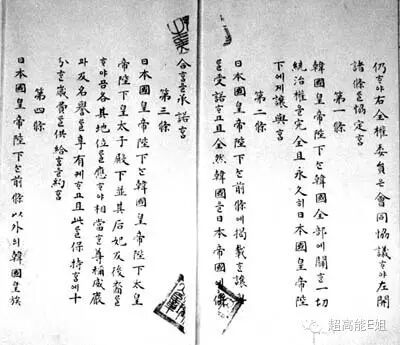 仍ᄒᆞ야右全權委員은會同協議ᄒᆞ야左開
諸條를協定홈
第一條
韓國皇帝陛下ᄂᆞᆫ韓國全部에關ᄒᆞᆫ一切
統治權을完全且永久히日本國皇帝陛
下에게讓與홈
第二條
日本國皇帝陛下ᄂᆞᆫ前條에揭載ᄒᆞᆫ讓與
를受諾ᄒᆞ고且全然韓國을日本帝國에倂
合홈을承諾홈
第三條
日本國皇帝陛下ᄂᆞᆫ韓國皇帝陛下太皇
帝陛下皇太子殿下並其后妃及後裔로
ᄒᆞ야곰各其地位를應ᄒᆞ야相當ᄒᆞᆫ尊稱威嚴
과及名譽를享有케ᄒᆞ고且此를保持홈에十
分ᄒᆞᆫ歲費를供給홈을約홈
第四條
日本國皇帝陛下ᄂᆞᆫ前條以外의韓國皇族
超高能E姐